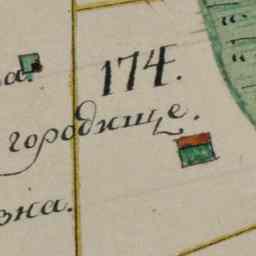 ва.
174.
городище.
вна.